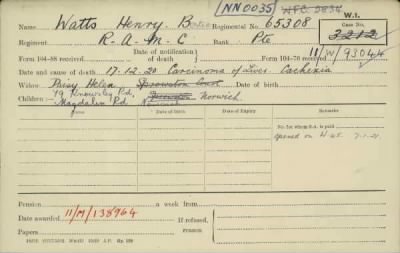 NN0035 W.F.C. 5834 W.I.
Name Watts Henry Regimental No. 65308 Case No.
Regiment R. A. M. C Rank Pte 3212
Form 104-88 received Date of notification of death Form 104-76 received 11/W/93044
Date and cause of death 17.12.20 Carcinoma of Liver. Cachexia
Widow Daisy Helen Sprowston Court Date of birth
Children 79 Knowsley Rd, Sprowston Norwich
Magdalen Rd, Norwich
Date of Birth Date of Expiry Remarks
No. for whom S.A. is paid
opened on W 45. 7-1-21.
Pension a week from
Date awarded 11/M/138964 If refused, reason
Papers